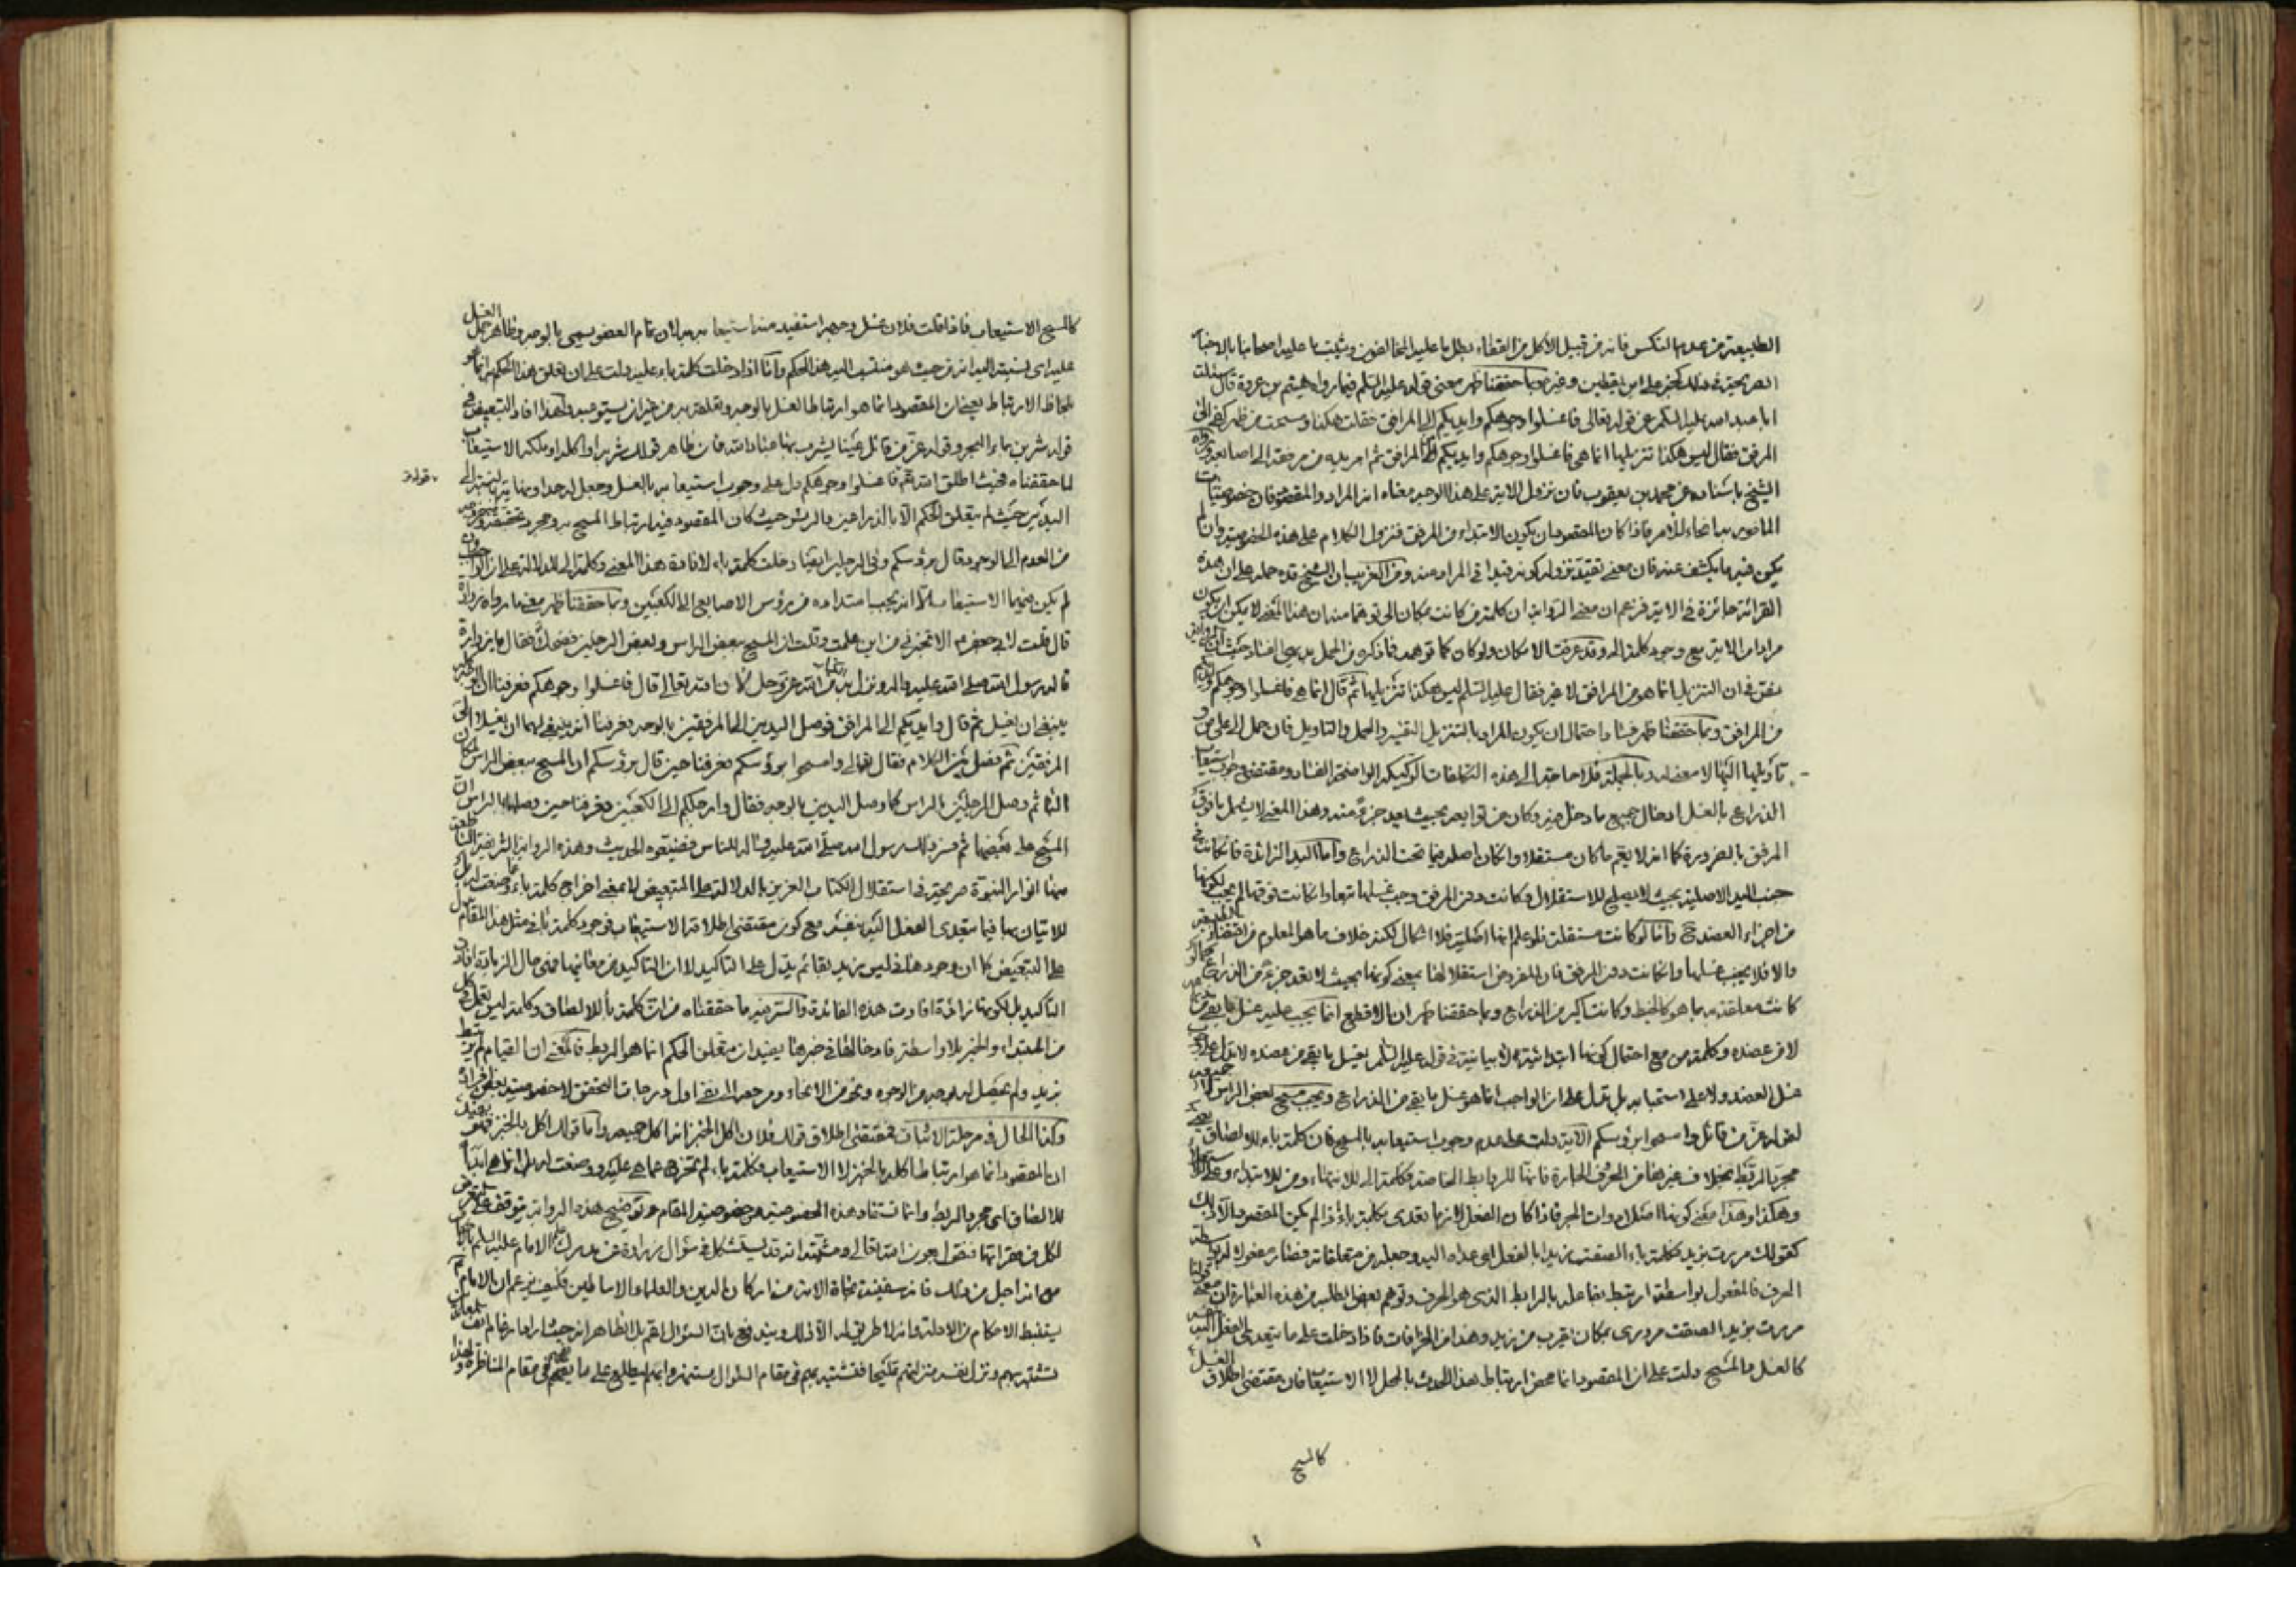 الطبيعة من عدم النكس فانه من قبيل الأكل من القفاء بطل ما عليه المخالفون ويثبت ما عليه اصحابنا بالاخبار
الصريحة في ذلك كخبر علي ابن يقطين وغيره وبما حققنا ظهر معنى قوله عليه السلم فيما رواه هيثم بن عروة قال سئلت
ابا عبد الله عليه السلم عن قوله تعالى فاغسلوا وجوهكم وايديكم الى المرافق فقلت هكذا ومسحت من ظهر كفي الى
المرفق فقال ليس هكذا تنزيلها انما هي فاغسلوا وجوهكم وايديكم من المرافق ثم امر يده من مرفقه الى اصابعه رواه
الشيخ باسناده عن محمد بن يعقوب فان نزول الاية على هذا الوجه معناه انه المراد والمقصود فان خصوصيات
المامور به انحاء للأمر فاذا كان المقصود ان يكون الابتداء من المرفق فنزول الكلام على هذه الخصوصية وان لم
يكن فيه ما يكشف عنه فان معنى تقيد نزوله كونه قيدا في المراد منه ومن الغريب ان الشيخ قده حمله على ان هذه
القرائة جائزة في الاية فزعم ان معنى الرواية ان كلمة من كانت بمكان الى توهما منه ان هذا المعنى لا يمكن ان يكون
مرادا من الاية مع وجود كلمة الى وقد عرفت الامكان ولو كان كما توهمه فما ذكره من الحمل بديهي الفساد حيث ان الراوي
من المرافق وبما حققنا ظهر فساد احتمال ان يكون المراد بالتنزيل التفسير والحمل والتاويل فان حمل الى على من
تأويلها اليها لا معنى له وبالجملة فلا حاجة الى هذه التكلفات الركيكة الواضحة الفساد ومقتضى وجوب استيعاب
الذراع بالغسل ادخال جميع ما دخل فيه وكان من توابعه بحيث يعد جزء منه وهذا المعنى لا يشمل ما فوق
المرفق بالضرورة كما انه لا يعم ما كان مستقلا وان كان اصله فيما تحت الذراع واما اليد الزائدة فان كانت في
جنب اليد الاصلية بحيث لا يصلح للاستقلال وكانت دون المرفق وجب غسلها تبعا وان كانت فوقها لم يجب لكونها
من اجزاء العضد ح واما لو كانت مستقلة فلو علم انها اصلية فلا اشكال لكنه خلاف ما هو المعلوم من اقتضاء
والا فلا يجب غسلها وان كانت دون المرفق فان المفروض استقلالها بمعنى كونها بحيث لا تعد جزء من الذراع
كانت معلقة به بما هو كالخيط وكانت اكبر من الذراع وبما حققنا ظهر ان الاقطع انما يجب عليه غسل ما بقي من
لا من عضده وكلمة من مع احتمال كونها ابتدائية لا بيانية في قوله عليه السلم يغسل ما بقي من عضده لا تدل على وجوب
غسل العضد ولا على استحبابه بل تدل على ان الواجب انما هو غسل ما بقي من الذراع ويجب مسح بعض الراس
لقوله عز من قائل وامسحوا برؤسكم الآية دلت على عدم وجوب استيعابه بالمسح فان كلمة باء للالصاق
مجرد الربط بخلاف غيرها من الحروف الجارة فانها للروابط الخاصة فكلمة الى للانتهاء ومن للابتداء وعلى للاستعلاء
وهكذا وهذا معنى كونها اصلا من ادوات الجر فاذا كان الفعل لازما تعدى بكلمة باء اذا لم يكن المقصود الا ذلك
كقولك مررت بزيد فكلمة باء الصقت زيدا بالفعل اي عداه اليه وجعله من متعلقاته فصار مفعولا له بواسطة
الحرف فالمفعول بواسطة ارتبط بفاعله بالرابط الذي هو الحرف وتوهم بعض الطلبة من هذه العبارة ان معنى قولنا
مررت بزيد الصقت مروري بمكان يقرب من زيد وهذا من الخرافات فاذا دخلت على ما يتعدى اليه الفعل بنفسه
كالغسل والمسح دلت على ان المقصود انما محض ارتباط هذا الحدث بالمحل لا الاستيعاب فان مقتضى اطلاق الغسل
كالمسح
كالمسح الاستيعاب فاذا قلت فلان غسل وجهه استفيد منه استيعابه به لان تمام العضو يسمى بالوجه وظاهر حمل الغسل
عليه اي نسبته اليه انه من حيث هو منتسب اليه هذا الحكم واما اذا دخلت كلمة باء عليه دلت على ان تعلق هذا الحكم به انما هو
بلحاظ الارتباط يعني ان المقصود انما هو ارتباط الغسل بالوجه وتعلقه به من غير ان يستوعبه ولهذا افاد التبعيض في
قوله شربن بماء البحر وقوله عز من قائل عينا يشرب بها عباد الله فان ظاهر قولك شربه او اكله او ملكه الاستيعاب
لما حققناه فحيث اطلق الله تعم فاغسلوا وجوهكم دل على وجوب استيعابه بالغسل وجعل له حدا ونهاية بالنسبة الى
اليدين حيث لم يتعلق الحكم الا بالذراعين وبالرؤس حيث كان المقصود فيه ارتباط المسح به ومجرد تحققه وخروجه
من العدم الى الوجود قال برؤسكم وفي الرجلين ايضا دخلت كلمة باء لافادة هذا المعنى وكلمة الى للدلالة على ان الواجب وان
لم يكن فيهما الاستيعاب الا انه يجب امتداده من رؤس الاصابع الى الكعبين وبما حققنا ظهر معنى ما رواه زرارة
قال قلت لابي جعفر ع الا تخبرني من اين علمت وقلت ان المسح ببعض الراس وبعض الرجلين فضحك فقال يا زرارة
قاله رسول الله صلى الله عليه واله ونزل به الكتاب من الله عز وجل لأن الله تعالى قال فاغسلوا وجوهكم فعرفنا ان الوجه كله
ينبغي ان يغسل ثم قال وايديكم الى المرافق فوصل اليدين الى المرفقين بالوجه فعرفنا انه ينبغي لهما ان يغسلا الى
المرفقين ثم فصل بين الكلام فقال تعالى وامسحوا برؤسكم فعرفنا حين قال برؤسكم ان المسح ببعض الراس لمكان
الباء ثم وصل الرجلين بالراس كما وصل اليدين بالوجه فقال وارجلكم الى الكعبين فعرفنا حين وصلهما بالراس ان
المسح على بعضهما ثم فسر ذلك رسول الله صلى الله عليه واله للناس فضيعوه الحديث وهذه الرواية الشريفة
منها انوار النبوة صريحة في استقلال الكتاب العزيز بالدلالة على التبعيض لا بمعنى اخراج كلمة باء عما وضعت له بل
للاتيان بها فيما يتعدى الفعل اليه بنفسه مع كون مقتضى اطلاقه الاستيعاب فوجود كلمة باء في مثل هذا المقام يدل
على التبعيض كما ان وجودها في ليس زيد بقائم يدل على التاكيد لا ان التاكيد من معانيها فهي حال الزيادة افادت
التاكيد بل لكونها زائدة افادت هذه الفائدة والسر فيه ما حققناه من ان كلمة باء للالصاق وكلمة ليس تعمل في كل
من المبتداء والخبر بلا واسطة فادخالها في خبرها يفيد ان متعلق الحكم انما هو الربط فالمعنى ان القيام لم يرتبط
بزيد ولم يحصل له بوجه من الوجوه ونحو من الانحاء ومرجعه الى نفي اول درجات التحقق لا خصوصية بعض افراده
وكذا الحال في مرحلة الاثبات فمقتضى اطلاق قولك فلان اكل الخبز انه اكل جميعه واما قولك اكل بالخبز فهو يفيد
ان المقصود انما هو ارتباط اكله بالخبز لا الاستيعاب فكلمة باء لم تخرج عما هي عليه ووضعت له بل انما هي ابدا
للالصاق اي مجرد الربط وانما تستفاد هذه الخصوصية من خصوصية المقام وتوضيح هذه الرواية يتوقف على
لكل من فقراتها فنقول بعون الله تعالى ومشيته انه قد يستشكل في سؤال زرارة عن مدرك علم الامام عليه السلم
مع انه اجل من ذلك فانه سفينة نجاة الامة من اركان الدين والعلماء الاساطين فكيف يزعم ان الامام
يستنبط الاحكام من الادلة وانه لا طريق له الا ذلك ويندفع بان السؤال اعم بل الظاهر انه حيث اراد ارغام انف